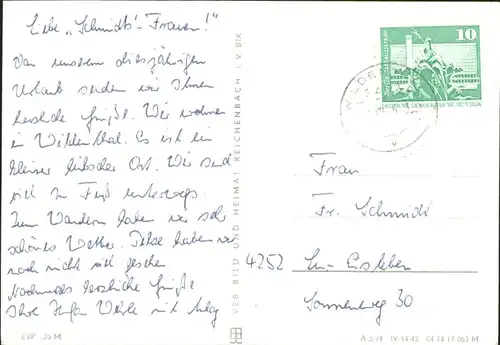 Liebe „Schmidt's-Frauen!"
Von unserem diesjährigen
Urlaub senden wir Ihnen
herzliche Grüße. Wir wohnen
in Wildenthal. Es ist ein
kleiner hübscher Ort. Wir sind
viel zu Fuß unterwegs.
Zum Wandern haben wir sehr
schönes Wetter. Pilze haben wir
noch nicht viel gesehen
Nochmals herzliche Grüße
Ihre
EVP -,25 M
VEB BILD UND HEIMAT REICHENBACH I. V. BfK
10
DEUTSCHE DEMOKRATISCHE REPUBLIK
Frau
Fr. Schmidt
4252 Eisleben
Sonnenweg 30
A 3/74 IV-14-45